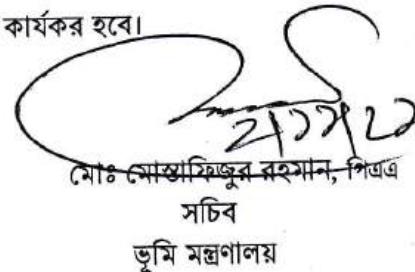 কার্যকর হবে।
মোঃ মোস্তাফিজুর রহমান, পিএএ
সচিব
ভূমি মন্ত্রণালয়